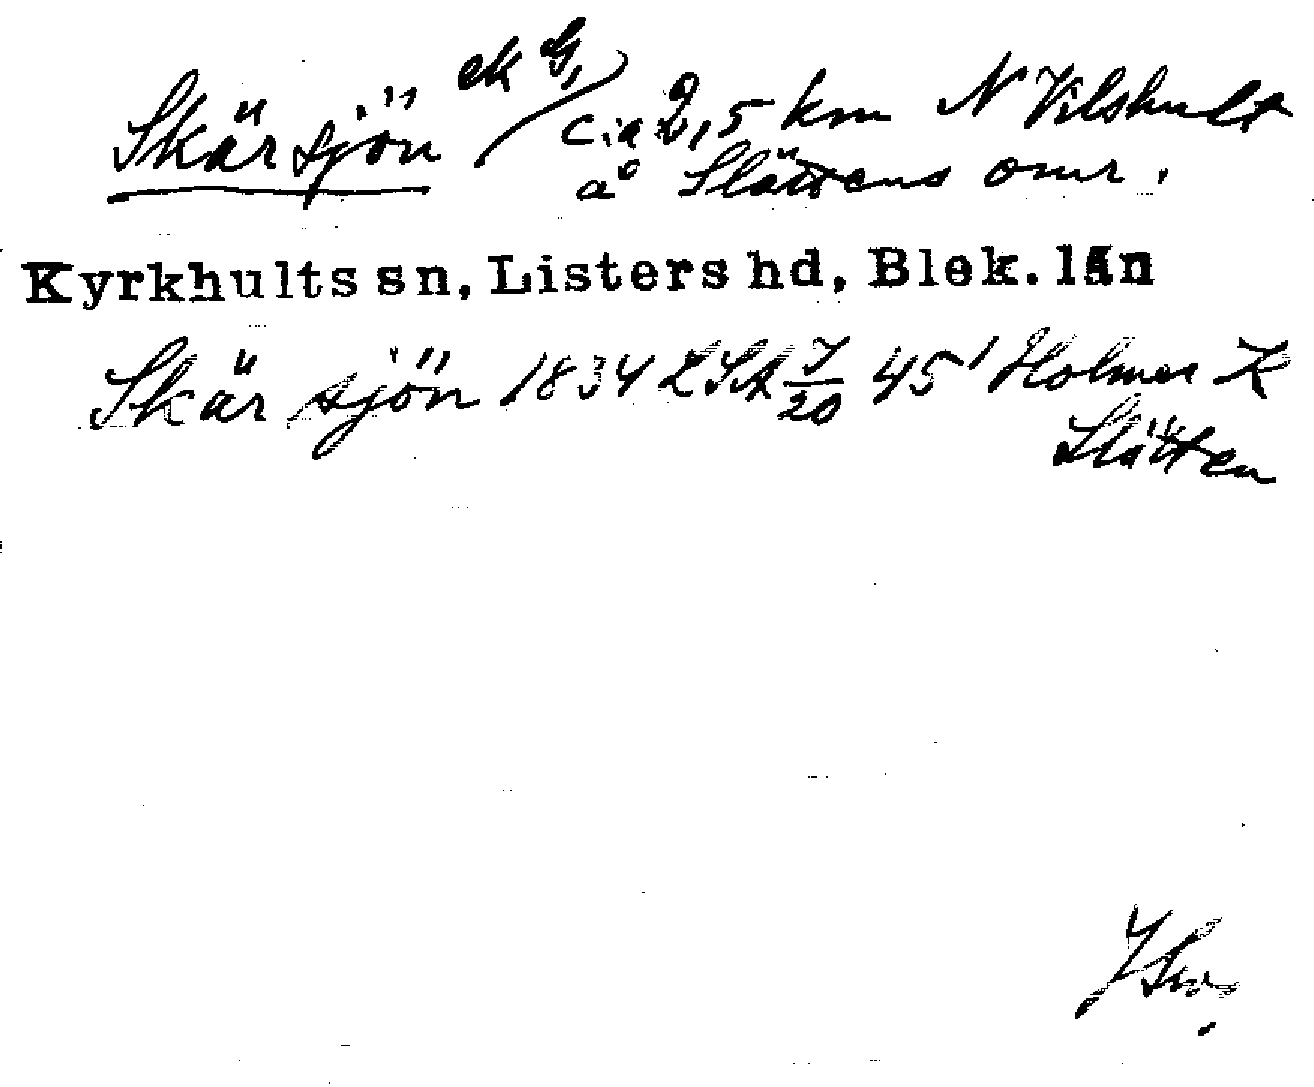 Skärsjön ek G, c:a 2,5 km N Vilshult
å Slättens omr.
Kyrkhults sn, Listers hd, Blek. län
Skärsjön 1834 LSA 7/20 45' Holmer K
Slätten